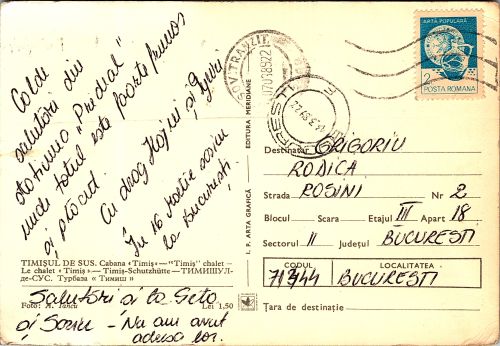 Calde
salutări din
statiunea "Predeal"
unde totul este foarte frumos
și plăcut.
Cu drag Hojni și Gyuri
În 16 martie sosim
la București.
TIMIȘUL DE SUS. Cabana «Timiș» — "Timiș" chalet —
Le chalet «Timiș» — Timiș-Schutzhütte — ТИМИШУЛ-
де-СУС. Турбаза «Тимиш»
Foto: A. Iancu Lei 1,50
Salutări și la Geto
și Soniu - Nu am avut
adresa lor.
I. P. ARTA GRAFICĂ
EDITURA MERIDIANE
ARTĂ POPULARĂ
2
POSTA ROMANA
Destinatar GRIGORIU
RODICA
Strada ROSINI Nr 2
Blocul Scara Etajul III Apart 18
Sectorul II Județul BUCURESTI
CODUL LOCALITATEA
71344 BUCURESTI
Țara de destinație